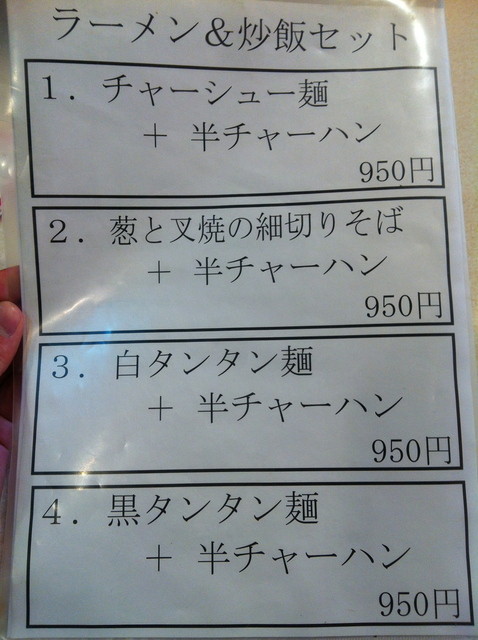 ラーメン＆炒飯セット
１．チャーシュー麺
＋ 半チャーハン
950円
２．葱と叉焼の細切りそば
＋ 半チャーハン
950円
３．白タンタン麺
＋ 半チャーハン
950円
４．黒タンタン麺
＋ 半チャーハン
950円